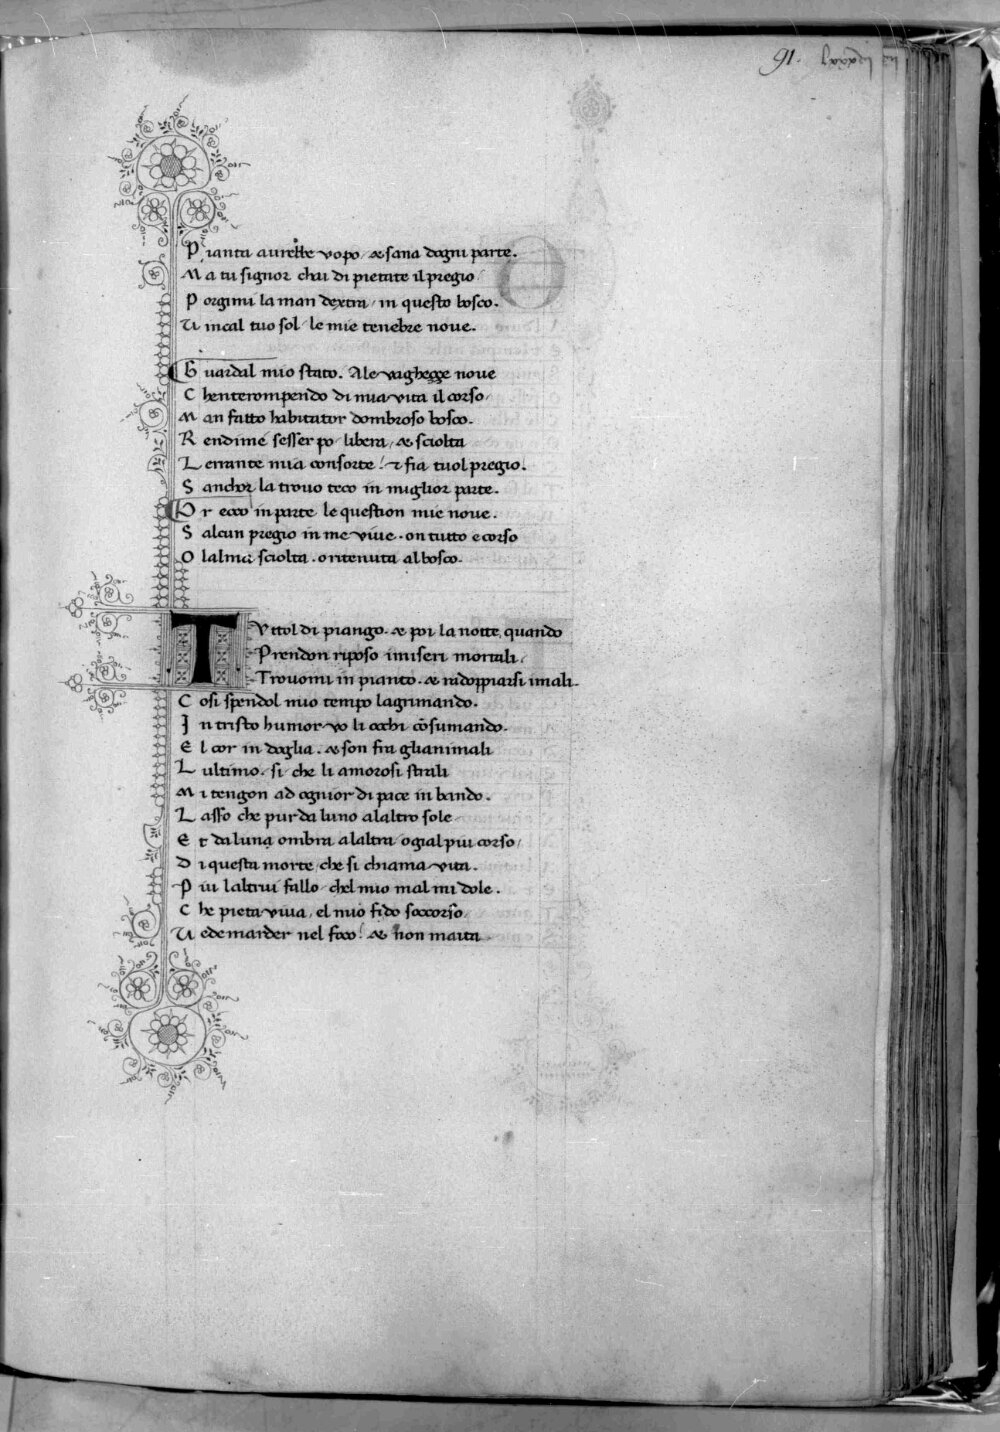 91.
P ianta aurebbe vopo / & sana dogni parte.
M a tu signor chai di pietate il pregio /
P orgimi la man dextra / in questo bosco.
V incal tuo sol / le mie tenebre noue.
G uardal mio stato. Ale vaghegge noue
C henterompendo di mia vita il corso /
M an fatto habitator dombroso bosco.
R endime sesser po / libera / & sciolta
L errante mia consorte ! & fia tuol pregio.
S anchor la trouo teco in miglior parte.
O r ecco in parte le question mie noue.
S alcun pregio in me viue . on tutto e corso
O lalma sciolta . o ritenuta al bosco.
T Vttol di piango . & poi la notte, quando
Prendon riposo i miseri mortali /
Trouomi in pianto . & radoppiarsi i mali.
C osi spendol mio tempo lagrimando.
I n tristo humor vo li occhi cōsumando.
E l cor in doglia . & son fra glianimali
L ultimo . si che li amorosi strali
M i tengon ad ognior di pace in bando.
L asso che pur da luno alaltro sole
E t da luna ombra a laltra / o gial piu corso /
D i questa morte / che si chiama vita.
P iu laltrui fallo / chel mio mal mi dole.
C he pieta viua / el mio fido soccorso /
V edemarder nel foco ! & non maita